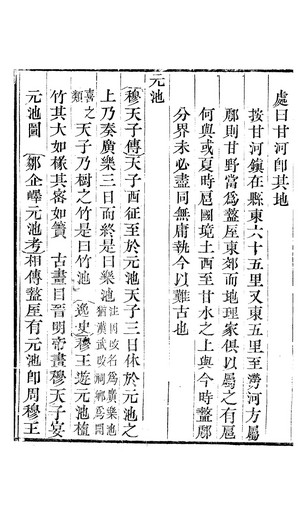 處曰甘河卽其地
按甘河鎮在縣東六十五里又東五里至澇河方屬
鄠則甘野當為盩厔東郊而地理家俱以屬之有扈
何與或夏時扈國境土西至甘水之上與今時盩鄠
分界未必盡同無庸執今以難古也
元池
穆天子傳天子西征至於元池天子三日休於元池之
上乃奏廣樂三日而終是曰樂池
天子乃樹之竹是曰竹池 逸史穆王遊元池植
竹其大如椽其密如簀 古畫目晉明帝畫穆天子宴
元池圖 鄒企嶧元池考相傳盩厔有元池卽周穆王